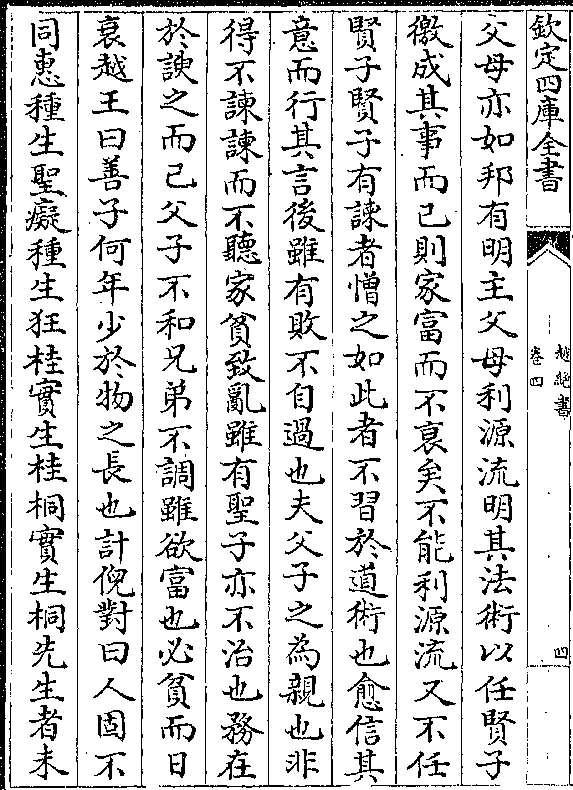 欽定四庫全書
越絶書
卷四
四
父母亦如邦有明主父母利源流明其法術以任賢子
徼成其事而已則家富而不衰矣不能利源流又不任
賢子賢子有諫者憎之如此者不習於道術也愈信其
意而行其言後雖有敗不自過也夫父子之為親也非
得不諫諫而不聽家貧致亂雖有聖子亦不治也務在
於諛之而已父子不和兄弟不調雖欲富也必貧而日
衰越王曰善子何年少於物之長也計倪對曰人固不
同惠種生聖癡種生狂桂實生桂桐實生桐先生者未